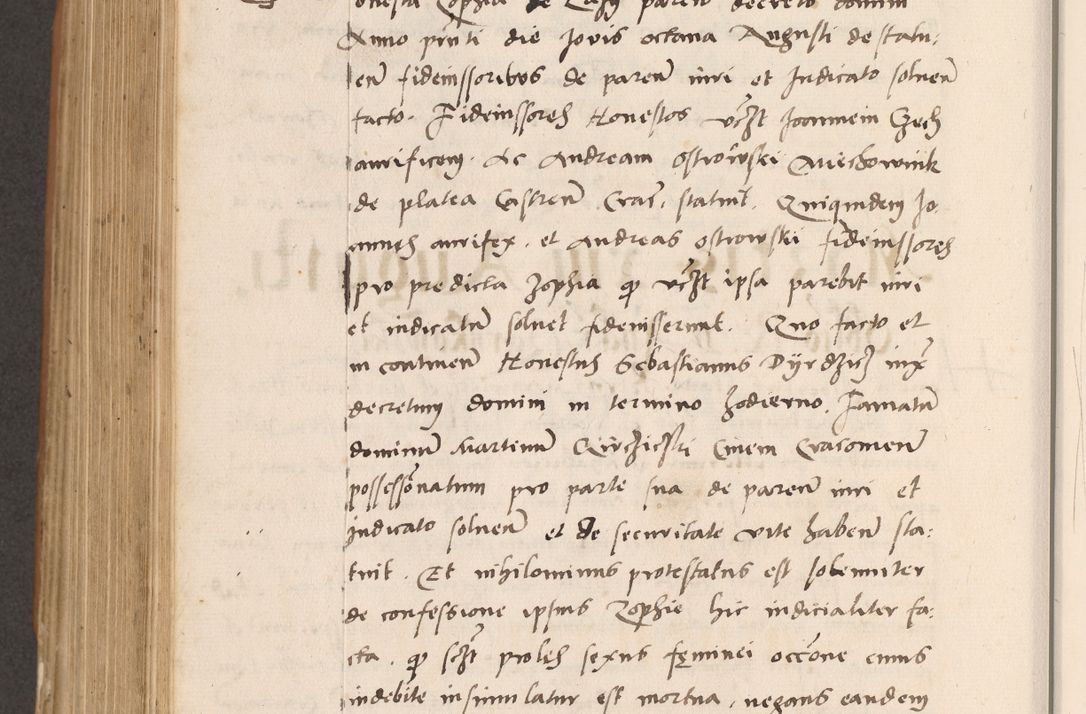 honesta Zophia de Lasy paren decreto domini
Anno pnti die Jovis octava Augusti de statu:
len fideiussoribus de paren iuri et Iudicato solven
facto. Fideiussores Honestos vczt Joannem Czech
aurificem. Ac Andream Ostrowski Miechownik
de platea Castren Crac. statuit. Quiquidem Jo
annes aurifex. et Andreas Ostrowski fideiussores
pro predicta Zophia qp vczt ipsa parebit iuri
et iudicatum solvet fideiusserunt. Quo facto et
in continen Honestus Sebastianus Dyrdzik iuxta
decretum domini in termino hodierno. Famatum
dominum Martinum Civem Cracovien
possessionatum pro parte sua de paren iuri et
Iudicato solven et de securitate vite haben sta:
tuit. Et nihilominus protestatus est solenniter
de confessione ipsius Zophie hic iudicialiter fa:
cta. qp sczt proles sexus feminei occone cuius
indebite insimulatur est mortua. negans eandem